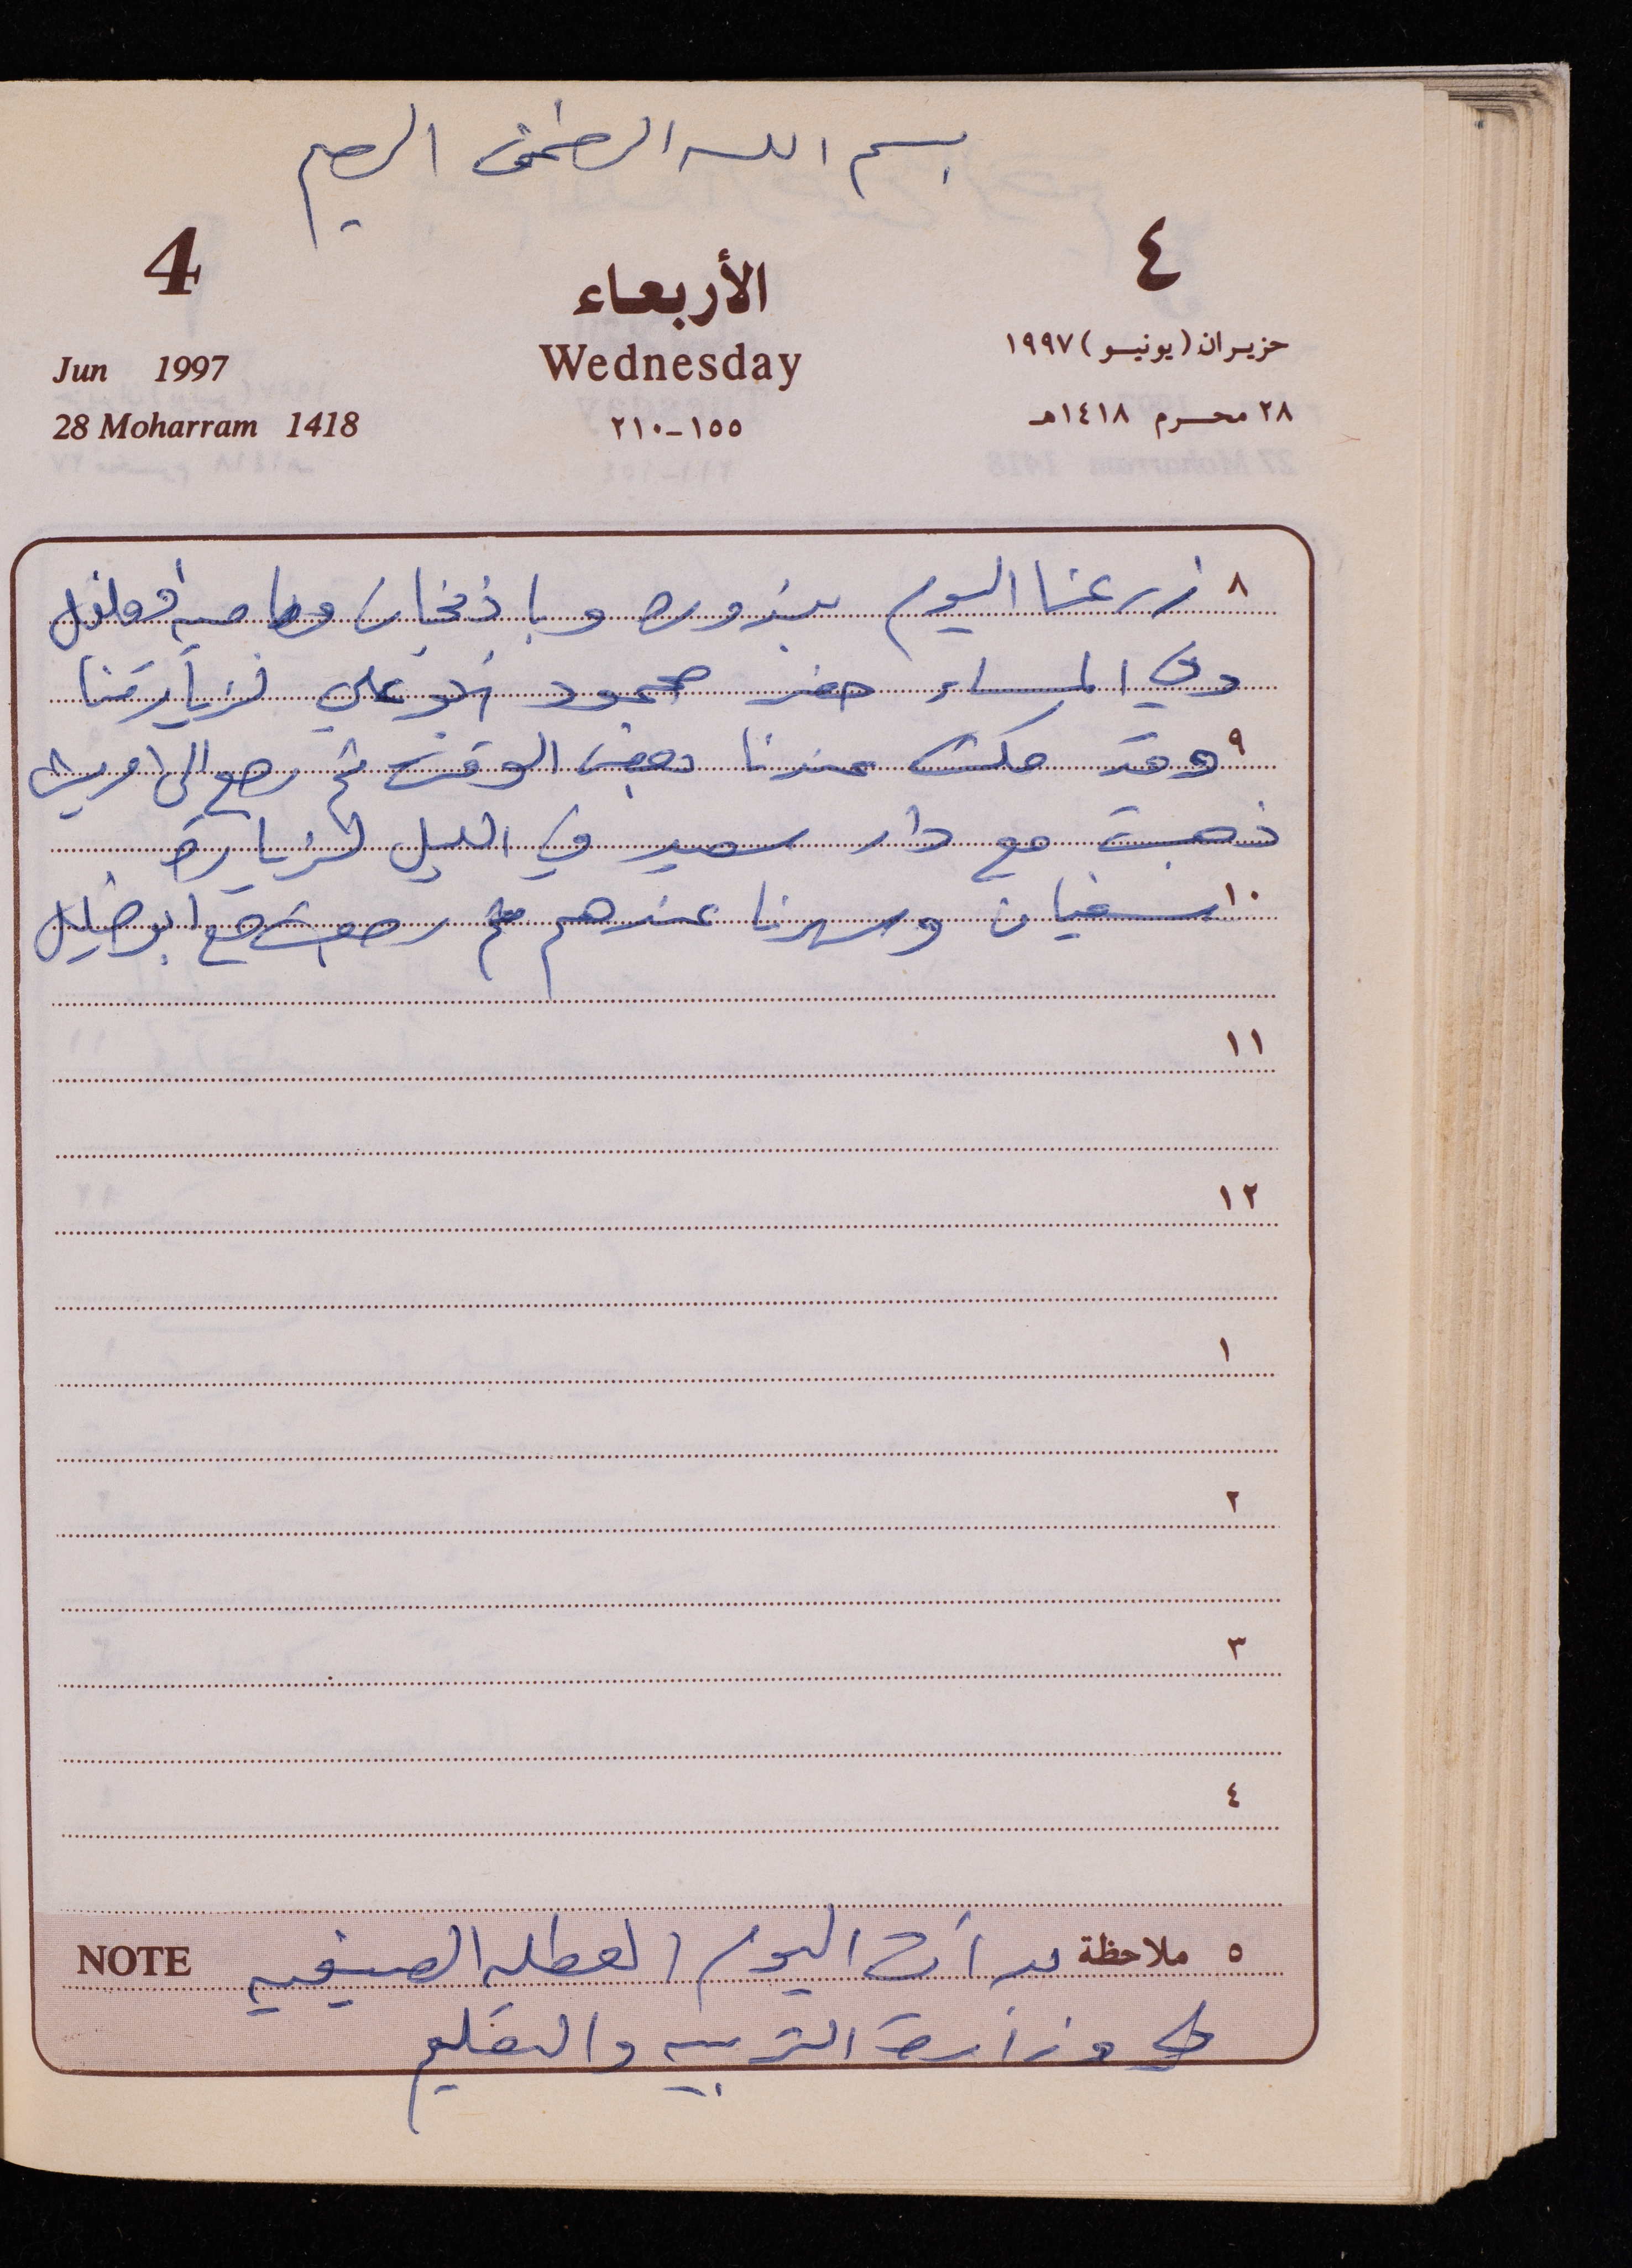 بسم الله الرحمن الرحيم
4
٤
الأربعاء
Jun 1997
Wednesday
حزيران (يونيو) ١٩٩٧
28 Moharram 1418
١٥٥-٢١٠
٢٨ محرم ١٤١٨هـ
٨ زرعنا اليوم بندوره وباذنجان وفلفل
وفي المساء حضر محمود ابو علي لزيارتنا
٩ وقد مكث عندنا بعض الوقت ثم رجع الى
ذهبت مع دار سعيد في الليل لزيارة
١٠ سفيان وسهرنا عندهم ثم رجعت مع ابو خليل
١١
١٢
١
٢
٣
٤
٥ ملاحظة بدأت اليوم العطله الصيفيه NOTE
في وزارة التربيه والتعليم